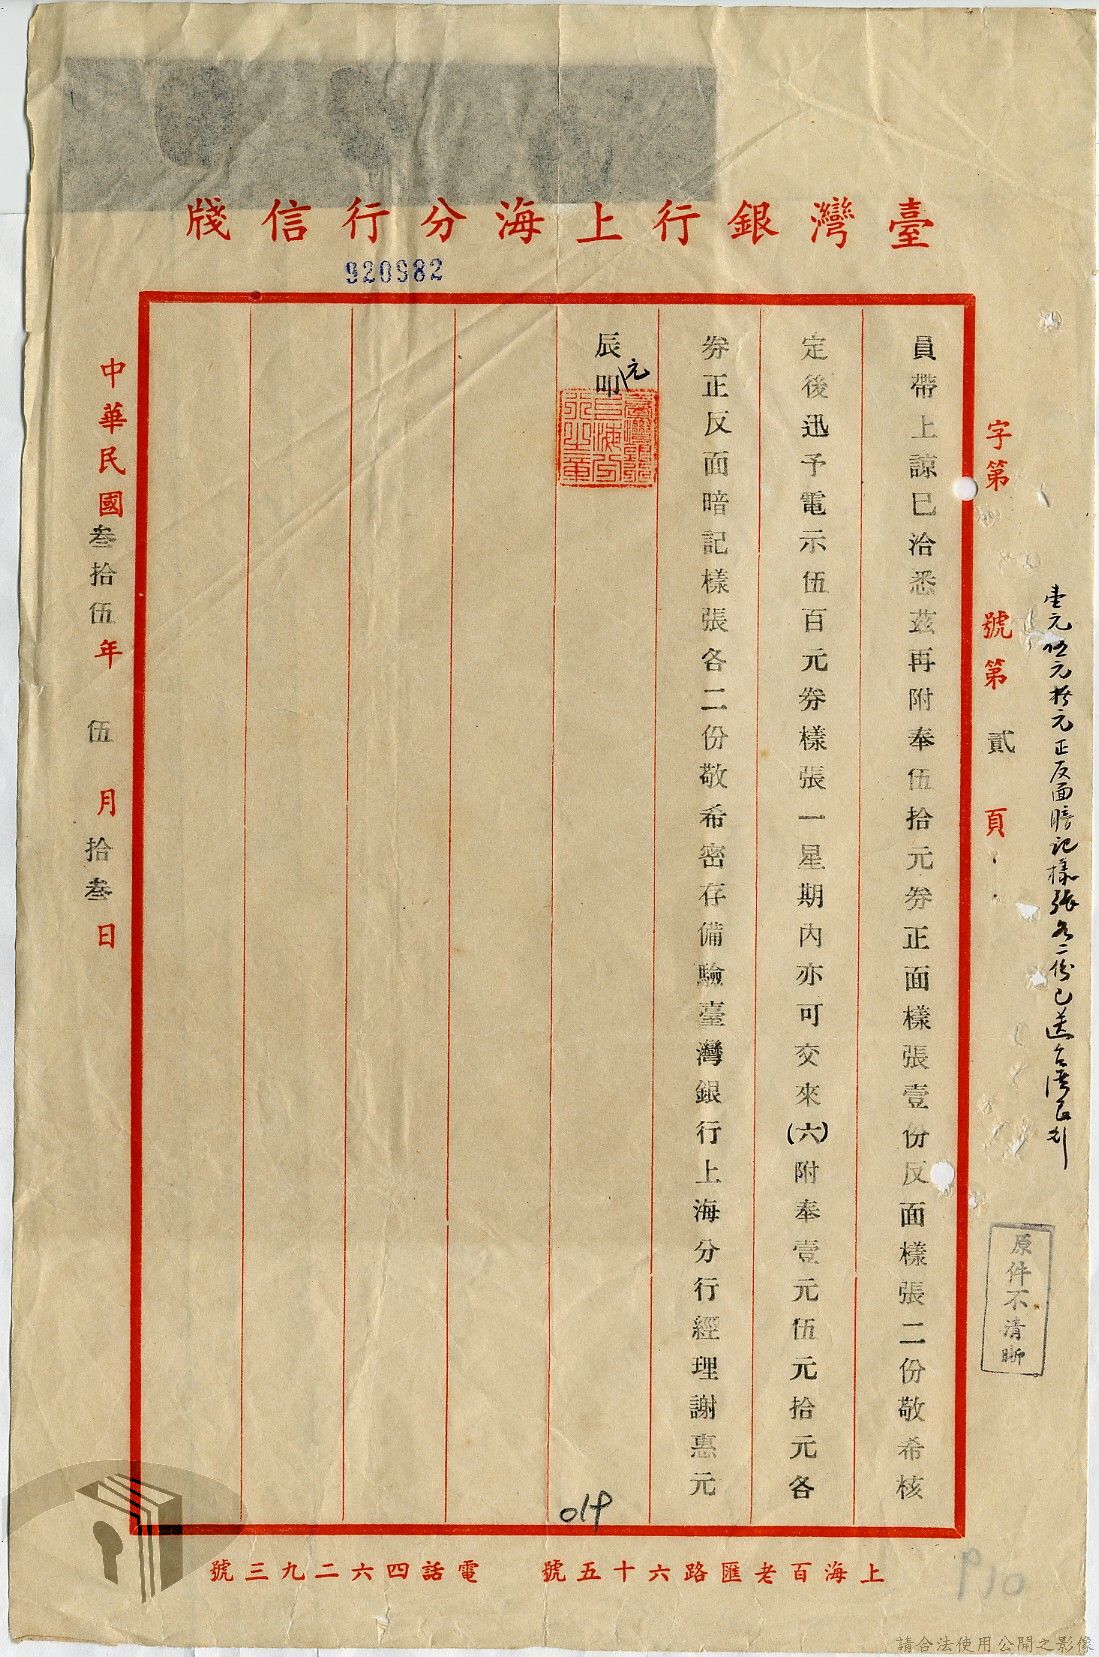 臺灣銀行上海分行信牋
920982
字第 號第貳頁
壹元伍元拾元正反面暗記樣張各二份已送台灣銀行
員帶上諒已洽悉茲再附奉伍拾元券正面樣張壹份反面樣張二份敬希核
定後迅予電示伍百元券樣張一星期內亦可交來(六)附奉壹元伍元拾元各
券正反面暗記樣張各二份敬希密存備驗臺灣銀行上海分行經理謝惠元
辰元叩
中華民國叁拾伍年伍月拾叁日
原件不清晰
019
上海百老匯路六十五號 電話四六二九三號
P10
請合法使用公開之影像